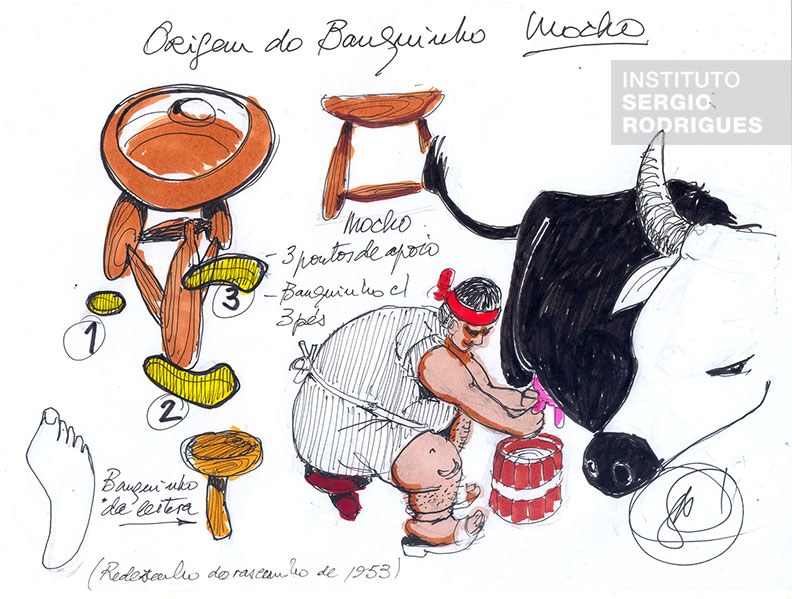 Origem do Banquinho Mocho
INSTITUTO
SERGIO
RODRIGUES
Mocho
- 3 pontos de apoio
- Banquinho c/
3 pés
1
3
2
Banquinho
da leitera
(Redesenho do rascunho de 1953)